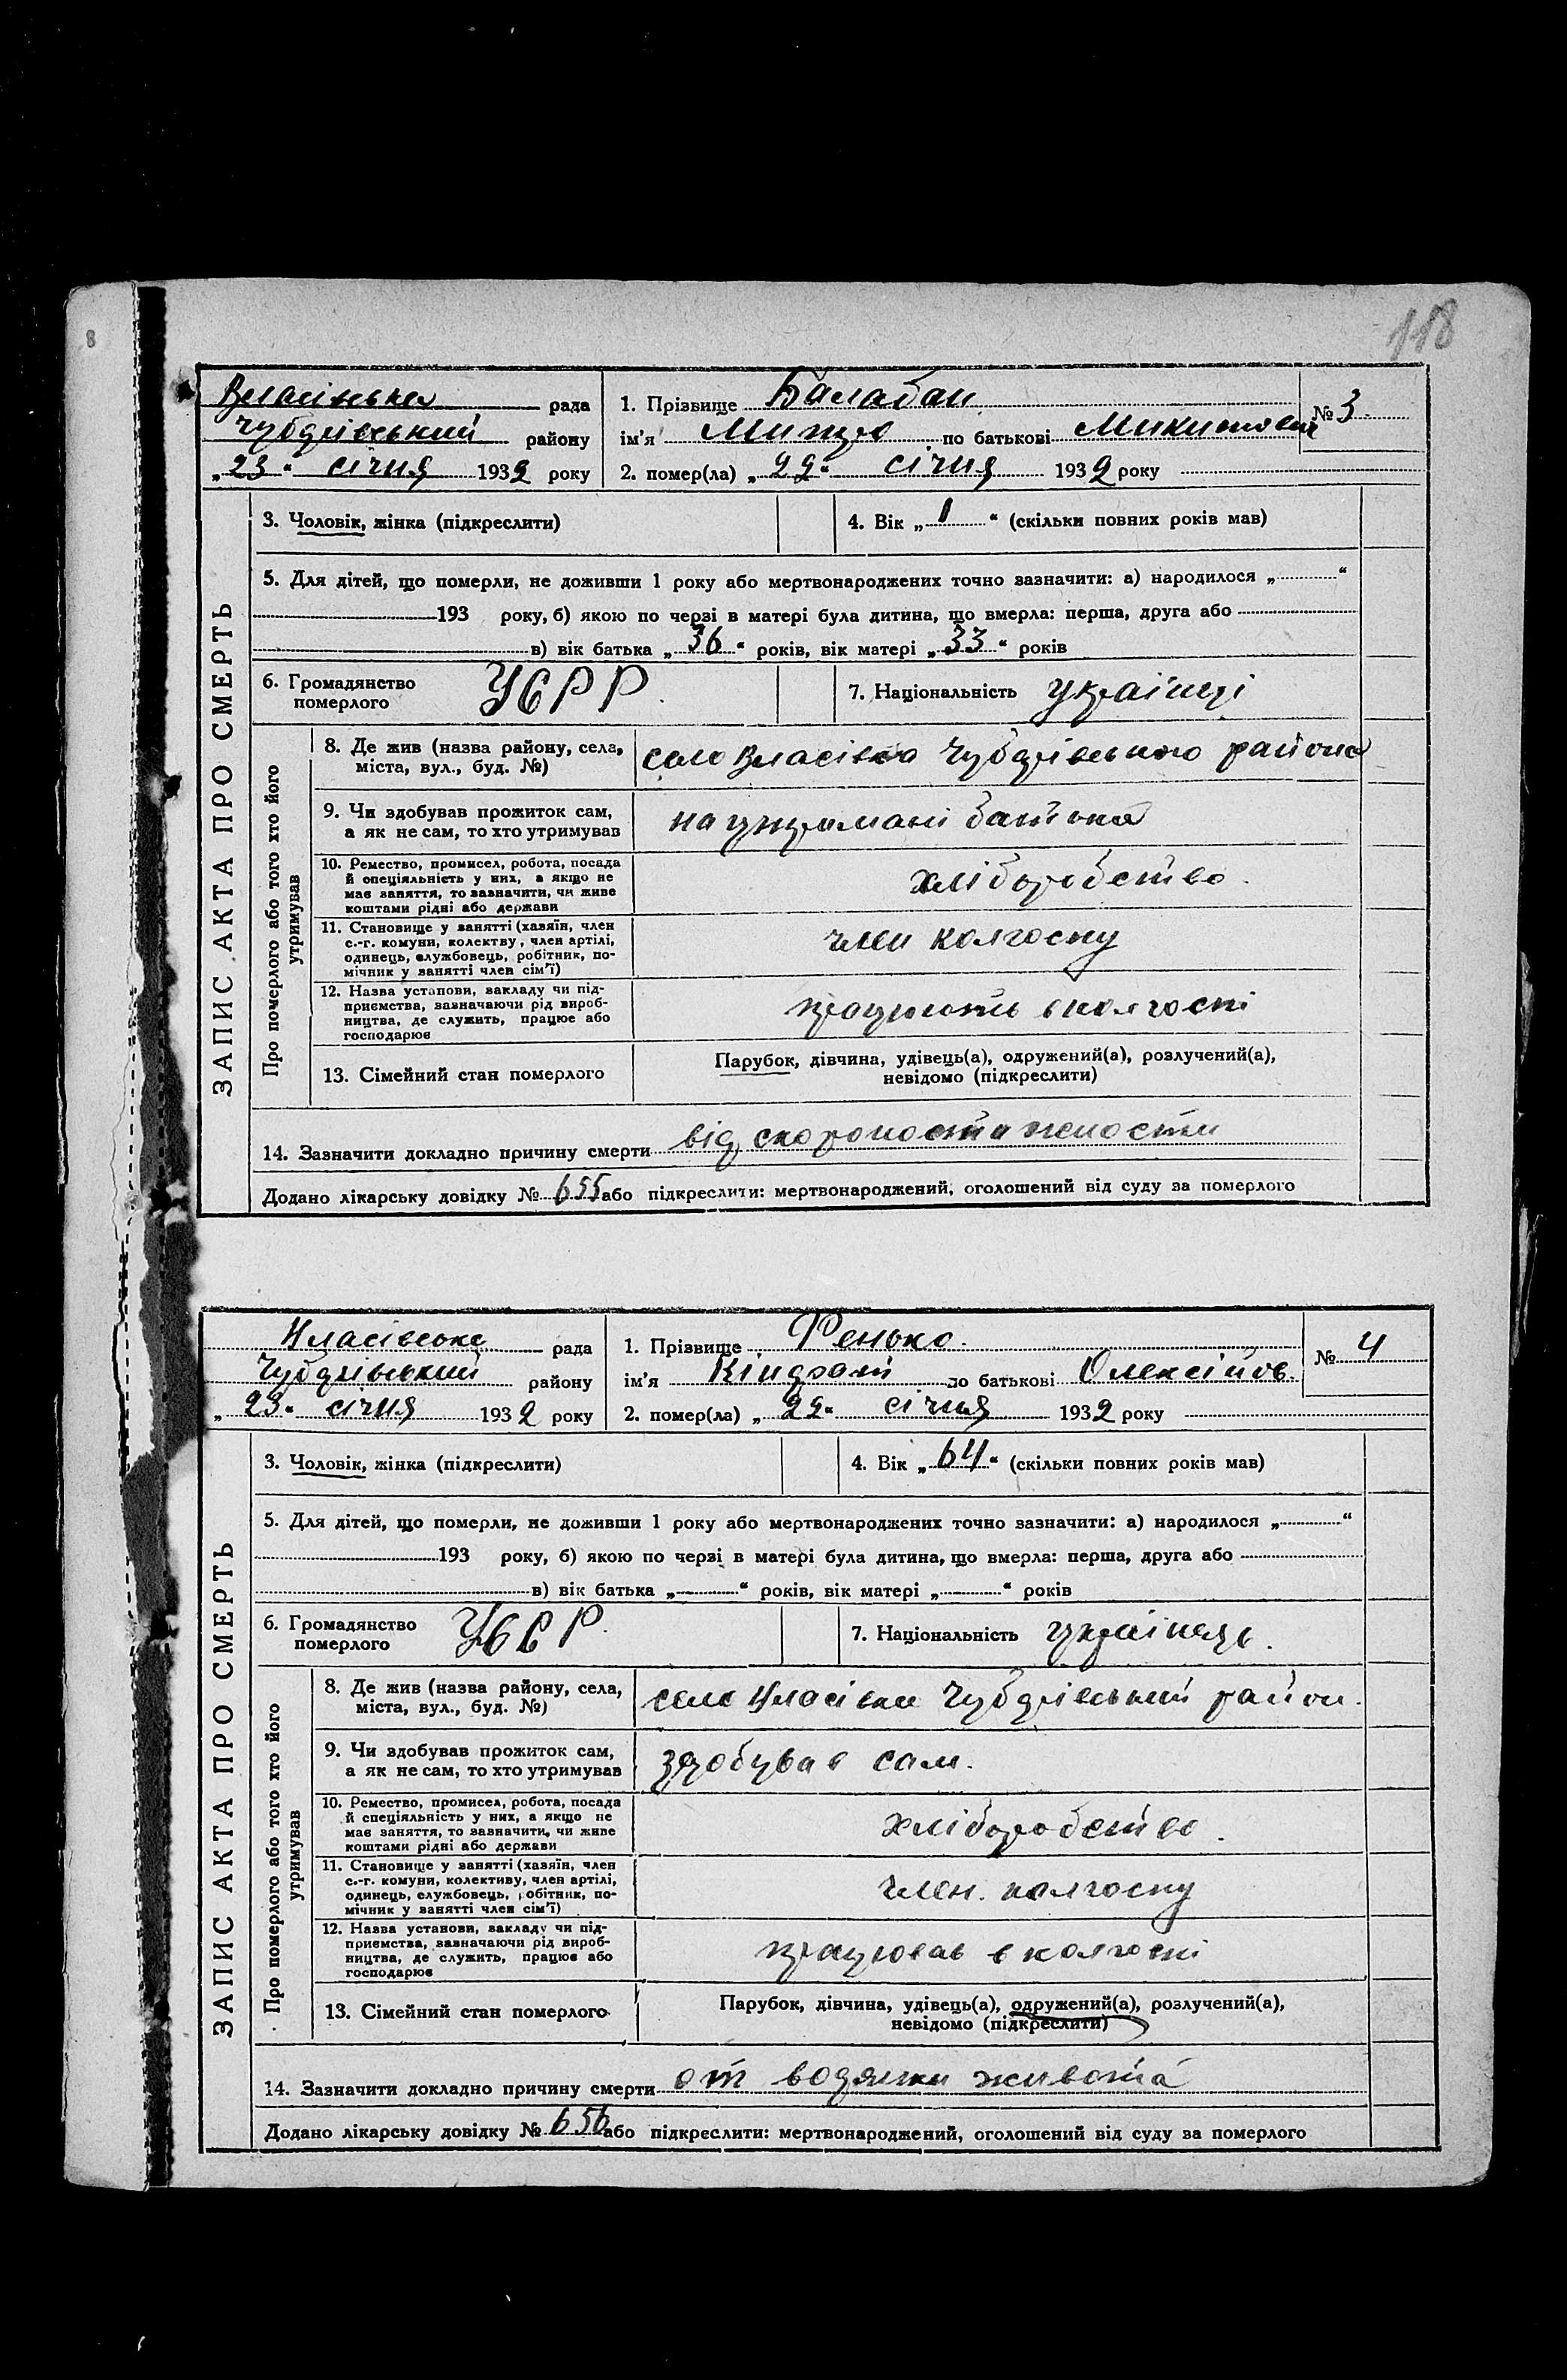 118
8
Власівська рада
Чубарівський району
„23“ січня 1932 року
1. Прізвище Балабан
ім'я Митро по батькові Микитович
2. помер(ла) „22“ січня 1932 року
№ 3
ЗАПИС АКТА ПРО СМЕРТЬ
3. Чоловік, жінка (підкреслити)
4. Вік „1“ (скільки повних років мав)
5. Для дітей, що померли, не доживши 1 року або мертвонароджених точно зазначити: а) народилося „ “
193 року, б) якою по черзі в матері була дитина, що вмерла: перша, друга або
в) вік батька „36“ років, вік матері „33“ років
6. Громадянство
померлого
УСРР.
7. Національність українці
Про померлого або того хто його
утримував
8. Де жив (назва району, села,
міста, вул., буд. №)
село Власівка Чубарівського района
9. Чи здобував прожиток сам,
а як не сам, то хто утримував
на утримані батька
10. Ремество, промисел, робота, посада
й спеціяльність у них, а якщо не
має заняття, то зазначити, чи живе
коштами рідні або держави
хліборобство.
11. Становище у занятті (хазяїн, член
с.-г. комуни, колектву, член артілі,
одинець, службовець, робітник, по-
мічник у занятті член сім'ї)
член колгоспу
12. Назва установи, закладу чи під-
приємства, зазначаючи рід вироб-
ництва, де служить, працює або
господарює
працюють в колгоспі
13. Сімейний стан померлого
Парубок, дівчина, удівець(а), одружений(а), розлучений(а),
невідомо (підкреслити)
14. Зазначити докладно причину смерти від скоропостижности
Додано лікарську довідку № 655 або підкреслити: мертвонароджений, оголошений від суду за померлого
Власівська рада
Чубарівський району
„23“ січня 1932 року
1. Прізвище Фенько.
ім'я Кіндрат по батькові Олексійов.
2. помер(ла) „22“ січня 1932 року
№ 4
ЗАПИС АКТА ПРО СМЕРТЬ
3. Чоловік, жінка (підкреслити)
4. Вік „64“ (скільки повних років мав)
5. Для дітей, що померли, не доживши 1 року або мертвонароджених точно зазначити: а) народилося „ “
193 року, б) якою по черзі в матері була дитина, що вмерла: перша, друга або
в) вік батька „ “ років, вік матері „ “ років
6. Громадянство
померлого
УССР.
7. Національність українець.
Про померлого або того хто його
утримував
8. Де жив (назва району, села,
міста, вул., буд. №)
село Власівка Чубарівський район.
9. Чи здобував прожиток сам,
а як не сам, то хто утримував
здобував сам.
10. Ремество, промисел, робота, посада
й спеціяльність у них, а якщо не
має заняття, то зазначити, чи живе
коштами рідні або держави
хліборобство.
11. Становище у занятті (хазяїн, член
с.-г. комуни, колективу, член артілі,
одинець, службовець, робітник, по-
мічник у занятті член сім'ї)
член. колгоспу
12. Назва установи, закладу чи під-
приємства, зазначаючи рід вироб-
ництва, де служить, працює або
господарює
працював в колгоспі
13. Сімейний стан померлого
Парубок, дівчина, удівець(а), одружений(а), розлучений(а),
невідомо (підкреслити)
14. Зазначити докладно причину смерти от водянки живота
Додано лікарську довідку № 656 або підкреслити: мертвонароджений, оголошений від суду за померлого